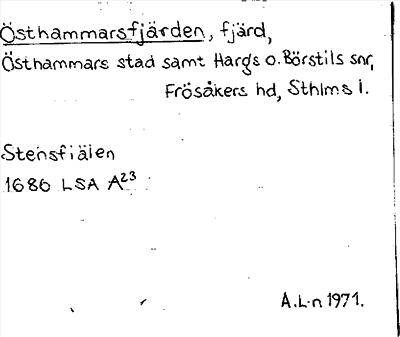 Östhammarsfjärden, fjärd,
Östhammars stad samt Hargs o. Börstils snr,
Frösåkers hd, Sthlms l.
Stensfiälen
1686 LSA A23
A.L-n 1971.